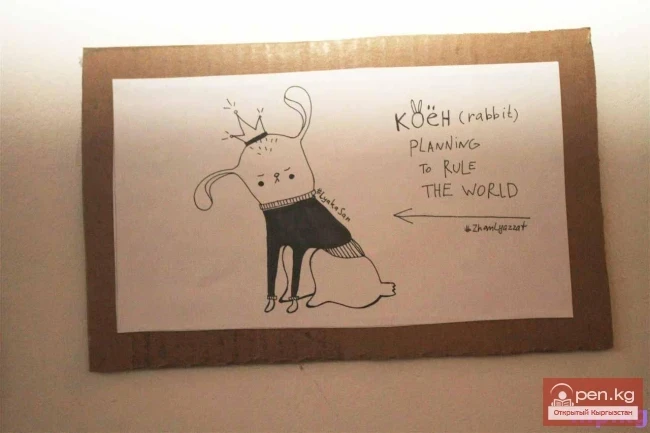 КОЁН (rabbit)
PLANNING
TO RULE
THE WORLD
Open.kg
Открытый Кыргызстан